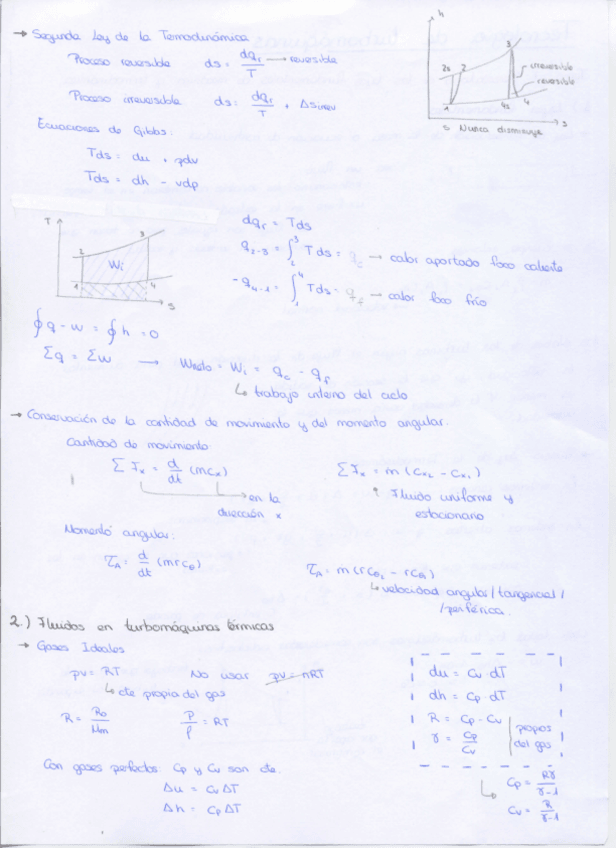 → Segunda Ley de la Termodinámica
Proceso reversible ds = dqr/T → reversible
Proceso irreversible ds = dqr/T + Δsirrev
Ecuaciones de Gibbs:
Tds = du + pdv
Tds = dh - vdp
h
3
2s 2
irreversible
reversible
1 4s 4
s
S Nunca disminuye
T
3
2
Wi
1 4
s
dqr = Tds
q2-3 = ∫₂³ Tds = qc → calor aportado foco caliente
-q4-1 = ∫₁⁴ Tds = qf → calor foco frío
∮q - w = ∮h = 0
Σq = Σw → Wneto = Wi = qc - qf
↳ trabajo interno del ciclo
→ Conservación de la cantidad de movimiento y del momento angular.
Cantidad de movimiento:
Σ Fx = d/dt (mcx)
→ en la
dirección x
Σ Fx = m (cx2 - cx1)
Fluido uniforme y
estacionario
Momento angular:
τA = d/dt (mrcθ)
τA = m (rcθ2 - rcθ1)
↳ velocidad angular / tangencial /
/ periférica.
2.) Fluidos en turbomáquinas térmicas
→ Gases Ideales
pv = RT No usar pv = nRT
↳ cte propia del gas
R = Ro/Mm p/ρ = RT
Con gases perfectos Cp y Cv son cte.
Δu = CvΔT
Δh = CpΔT
du = Cv·dT
dh = Cp·dT
R = Cp - Cv
γ = Cp/Cv
propios
del gas
↳ Cp = Rγ/γ-1
Cv = R/γ-1